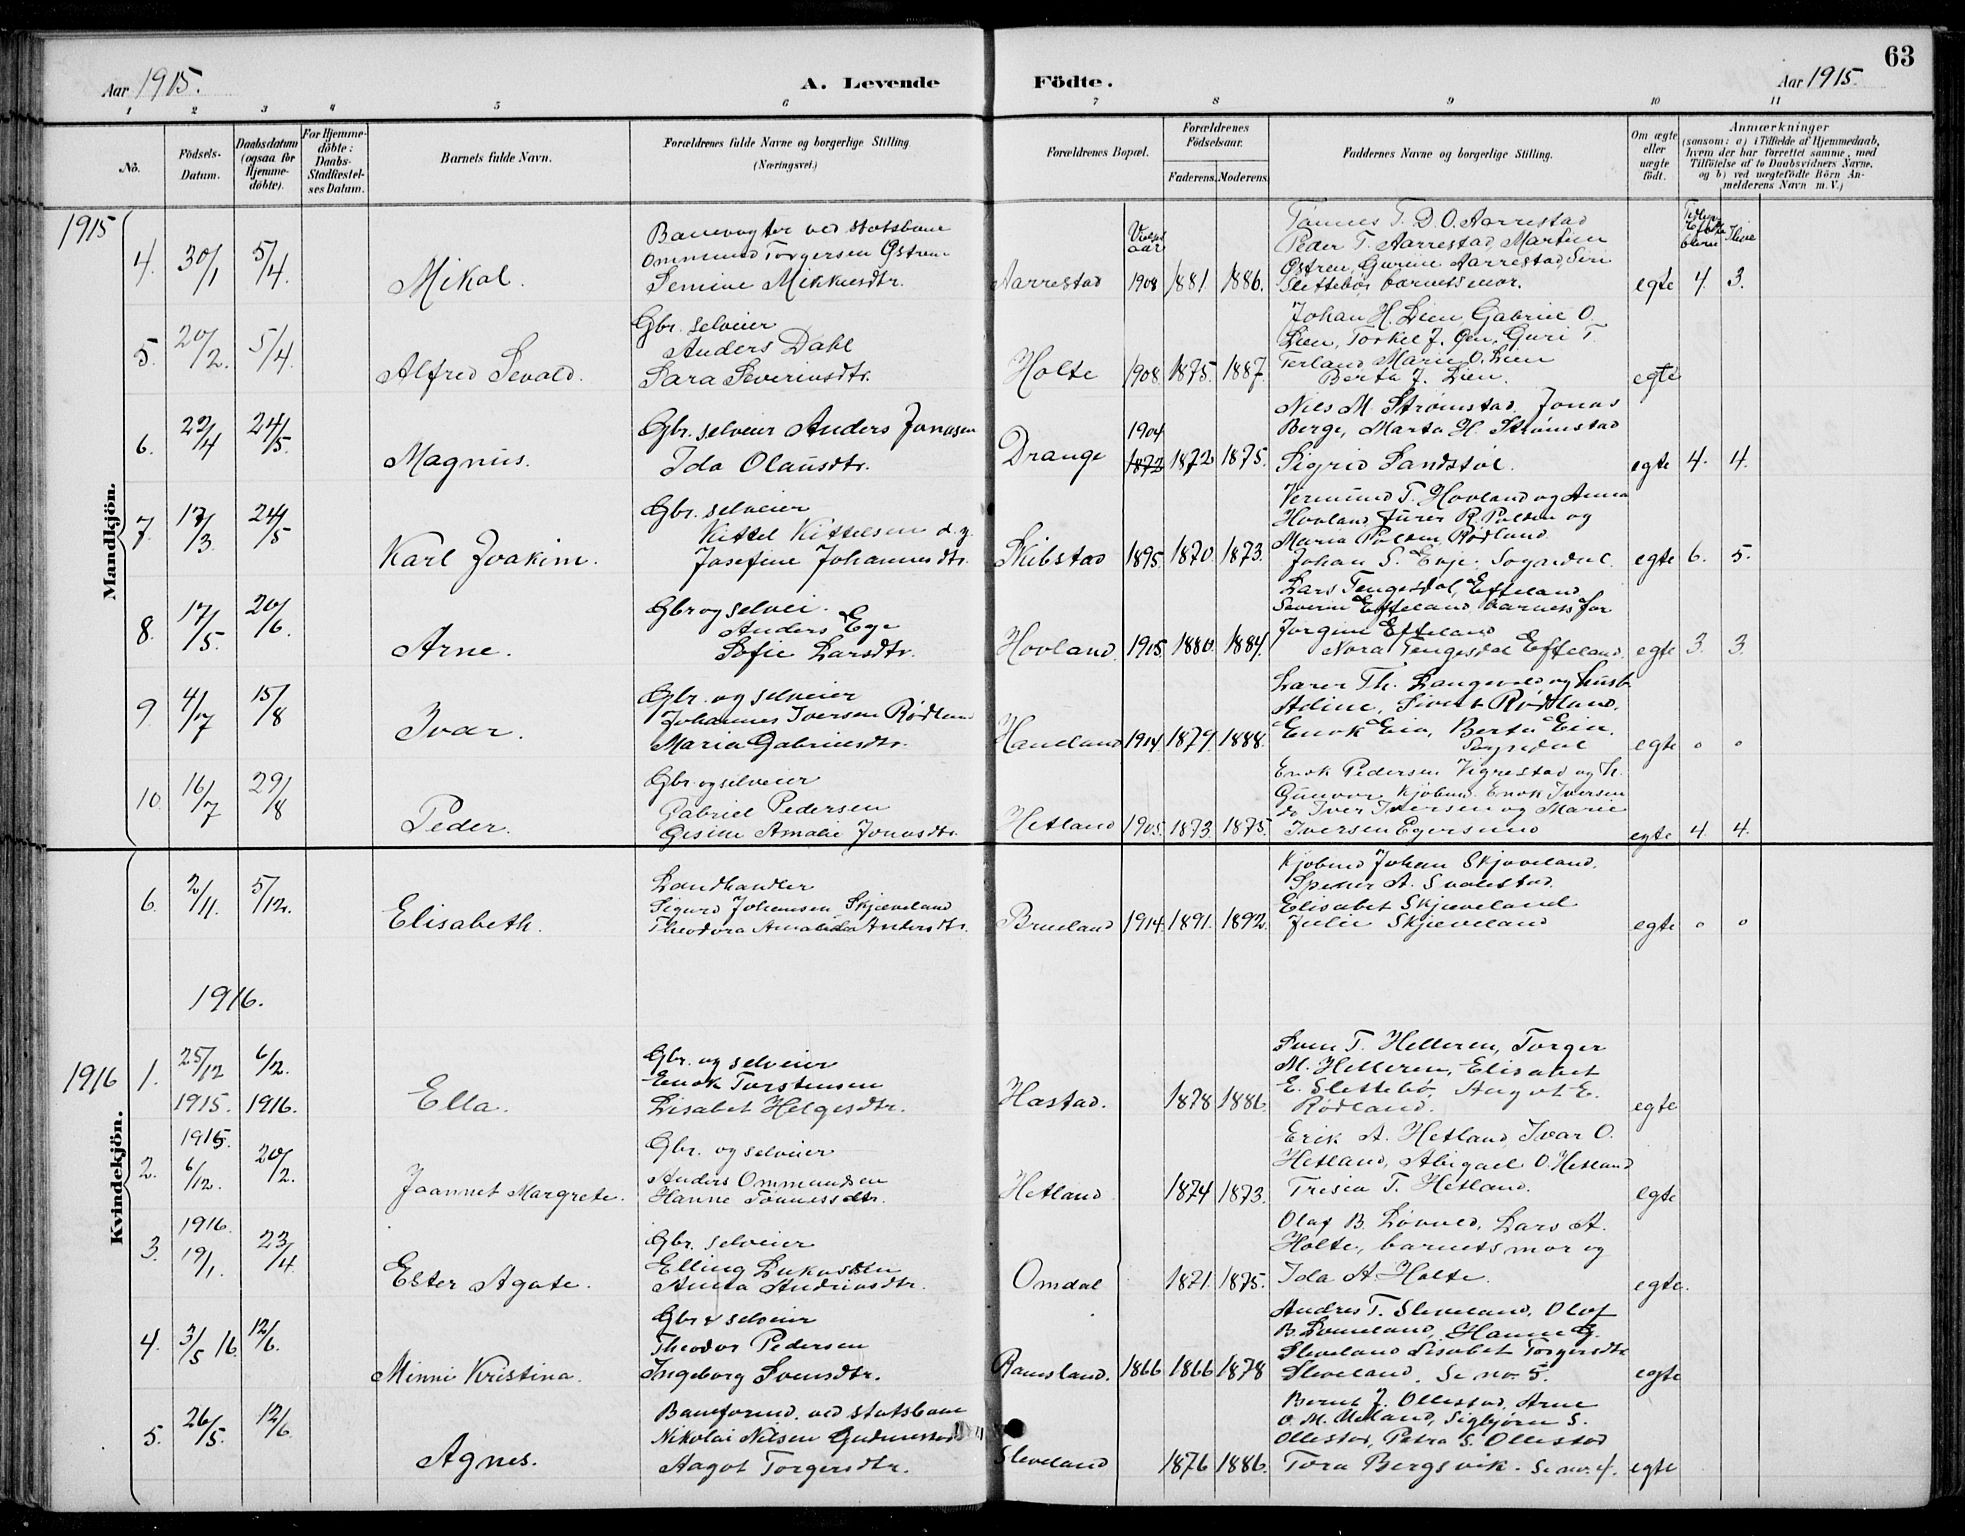 63
Aar 1915.
A. Levende Födte.
Aar 1915.
1 2 3 4 5 6 7 8 9 10 11
No.
Födsels-Datum.
Daabsdatum (ogsaa for Hjemme-döbte).
For Hjemme-döbte: Daabs-Stadfæstel-ses Datum.
Barnets fulde Navn.
Forældrenes fulde Navne og borgerlige Stilling. (Næringsvei.)
Forældrenes Bopæl.
Forældrenes Födselsaar.
Faderens. Moderens.
Faddernes Navne og borgerlige Stilling.
Om ægte eller uægte födt.
Anmærkninger
(saasom: a) i Tilfælde af Hjemmedaab, hvem der har forrettet samme, med Tilföielse af to Daabsvidners Navne, og b) ved uægtefödte Börn An-melderens Navn m. V.)
Mandkjön.
1915
4. 30/1 5/4. Mikal.
Banevogter ved statsbane
Ommund Torgersen Østren
Semine Mikkelsdtr.
Aarrestad
Vielses aar
1908 1881 1886.
Tønnes T. D. O. Aarrestad
Peder T. Aarrestad Martin
Østren, Gurine Aarrestad, Seri
Slettebø, barnets mor.
egte 4. 3.
5. 20/2. 5/4 Alfred Sevald.
Gbr. selveier
Anders Dahl
Sara Severinsdtr.
Holte 1908. 1875. 1887.
Johan H. Lien, Gabriel O.
Lien, Torkel J. Øen, Guri T.
Terland, Marie O. Lien
Berta J. Lien.
egte
6. 22/4 24/5. Magnus.
Gbr. selveier Anders Jonassen
Ida Olausdtr.
Drange 1904 1872 1872 1875.
Nils M. Strømstad, Jonas
Berge, Marta H. Strømstad
Sigrid Sandstøl.
egte 4. 4.
7. 17/3 24/5 Karl Joakim.
Gbr. selveier
Kittel Kittelsen d. y.
Josefine Johannesdtr.
Skibstad 1895. 1870. 1873.
Vermund T. Hovland og Anna
Hovland, furer R. Polden og
Maria Polden, Rødland
Johan S. Evje. Sogndal.
egte 6. 5.
8. 17/5. 20/6. Arne.
Gbr og selvei.
Anders Ege
Sofie Larsdtr.
Hovland. 1905. 1880. 1884.
Lars Tengesdal, Efteland
Severin Efteland, barnets far
Jørgine Efteland
Nora Tengesdal Efteland.
egte 3. 3.
9. 4/7 15/8 Ivar.
Gbr. og selveier
Johannes Iversen Rødland
Maria Gabrielsdtr.
Haneland 1914 1879 1888.
Larer Th. Langevold og hustr.
Adine, Sivert Rødland.
Enok Eia, Berta Eia.
Sogndal
egte 0 0
10. 16/7 29/8 Peder.
Gbr. og selveier
Gabriel Pedersen
Gesine Amalie Jonasdtr.
Hetland 1905. 1873. 1875.
Enok Pedersen Vigrestad og h.
Gunvor, Kjøbmd. Enok Iversen
do Iver Iversen og Marie
Iversen Egersund
egte 4. 4.
Kvindekjön.
6. 2/11. 5/12. Elisabeth.
Landhandler
Sigurd Johansen Skjæveland
Theodora Amalie Andersdtr.
Brueland 1914. 1891. 1892.
Kjøbmd Johan Skjæveland.
A. Svalestad.
Elisabet Skjæveland
Julie Skjæveland
egte 0 0
1916.
1916 1. 25/12 1915. 6/2. 1916. Ella.
Gbr. og selveier
Enok Torstensen
Lisabet Helgesdtr.
Hæstad. 1878 1886.
Sven T. Helleren, Torger
M. Helleren, Elisabet
E. Slettebø, Aagot E.
Rødland.
egte
2. 1915. 6/12. 20/2. Joannet Margrete.
Gbr. og selveier
Anders Ommundsen
Hanne Tønnesdtr.
Hetland. 1874 1873.
Erik A. Hetland, Ivar O.
Hetland, Abigael O. Hetland
Tresia T. Hetland.
egte
3. 1916. 19/1. 23/4. Ester Agate.
Gbr. selveier
Elling Lukassen
Anna Andreasdtr.
Omdal 1871. 1875.
Olaf B. Løvold, Lars A.
Holte, barnets mor og
Ida A. Holte.
egte.
4. 3/5 16. 12/6. Minni Kristina.
Gbr & selveier
Theodor Pedersen
Ingeborg Svensdtr.
Ramsland. 1866 1866 1878
Andres T. Sleveland, Olaf
B. Sleveland, Hanne G.
Sleveland Lisabet Torgersdtr
Sleveland. Se no. 5.
egte
5. 26/5. 12/6. Agnes.
Baneformd. ved statsbane
Nikolai Nilsen Gudmestad
Aagot Torgersdtr.
Sleveland 1876 1886.
Bernt J. Ollestad, Arne
O. M. Helland, Sigbjørn S.
Ollestad, Petra S. Ollestad
Tora Bergsvik. Se no. 4.
egte